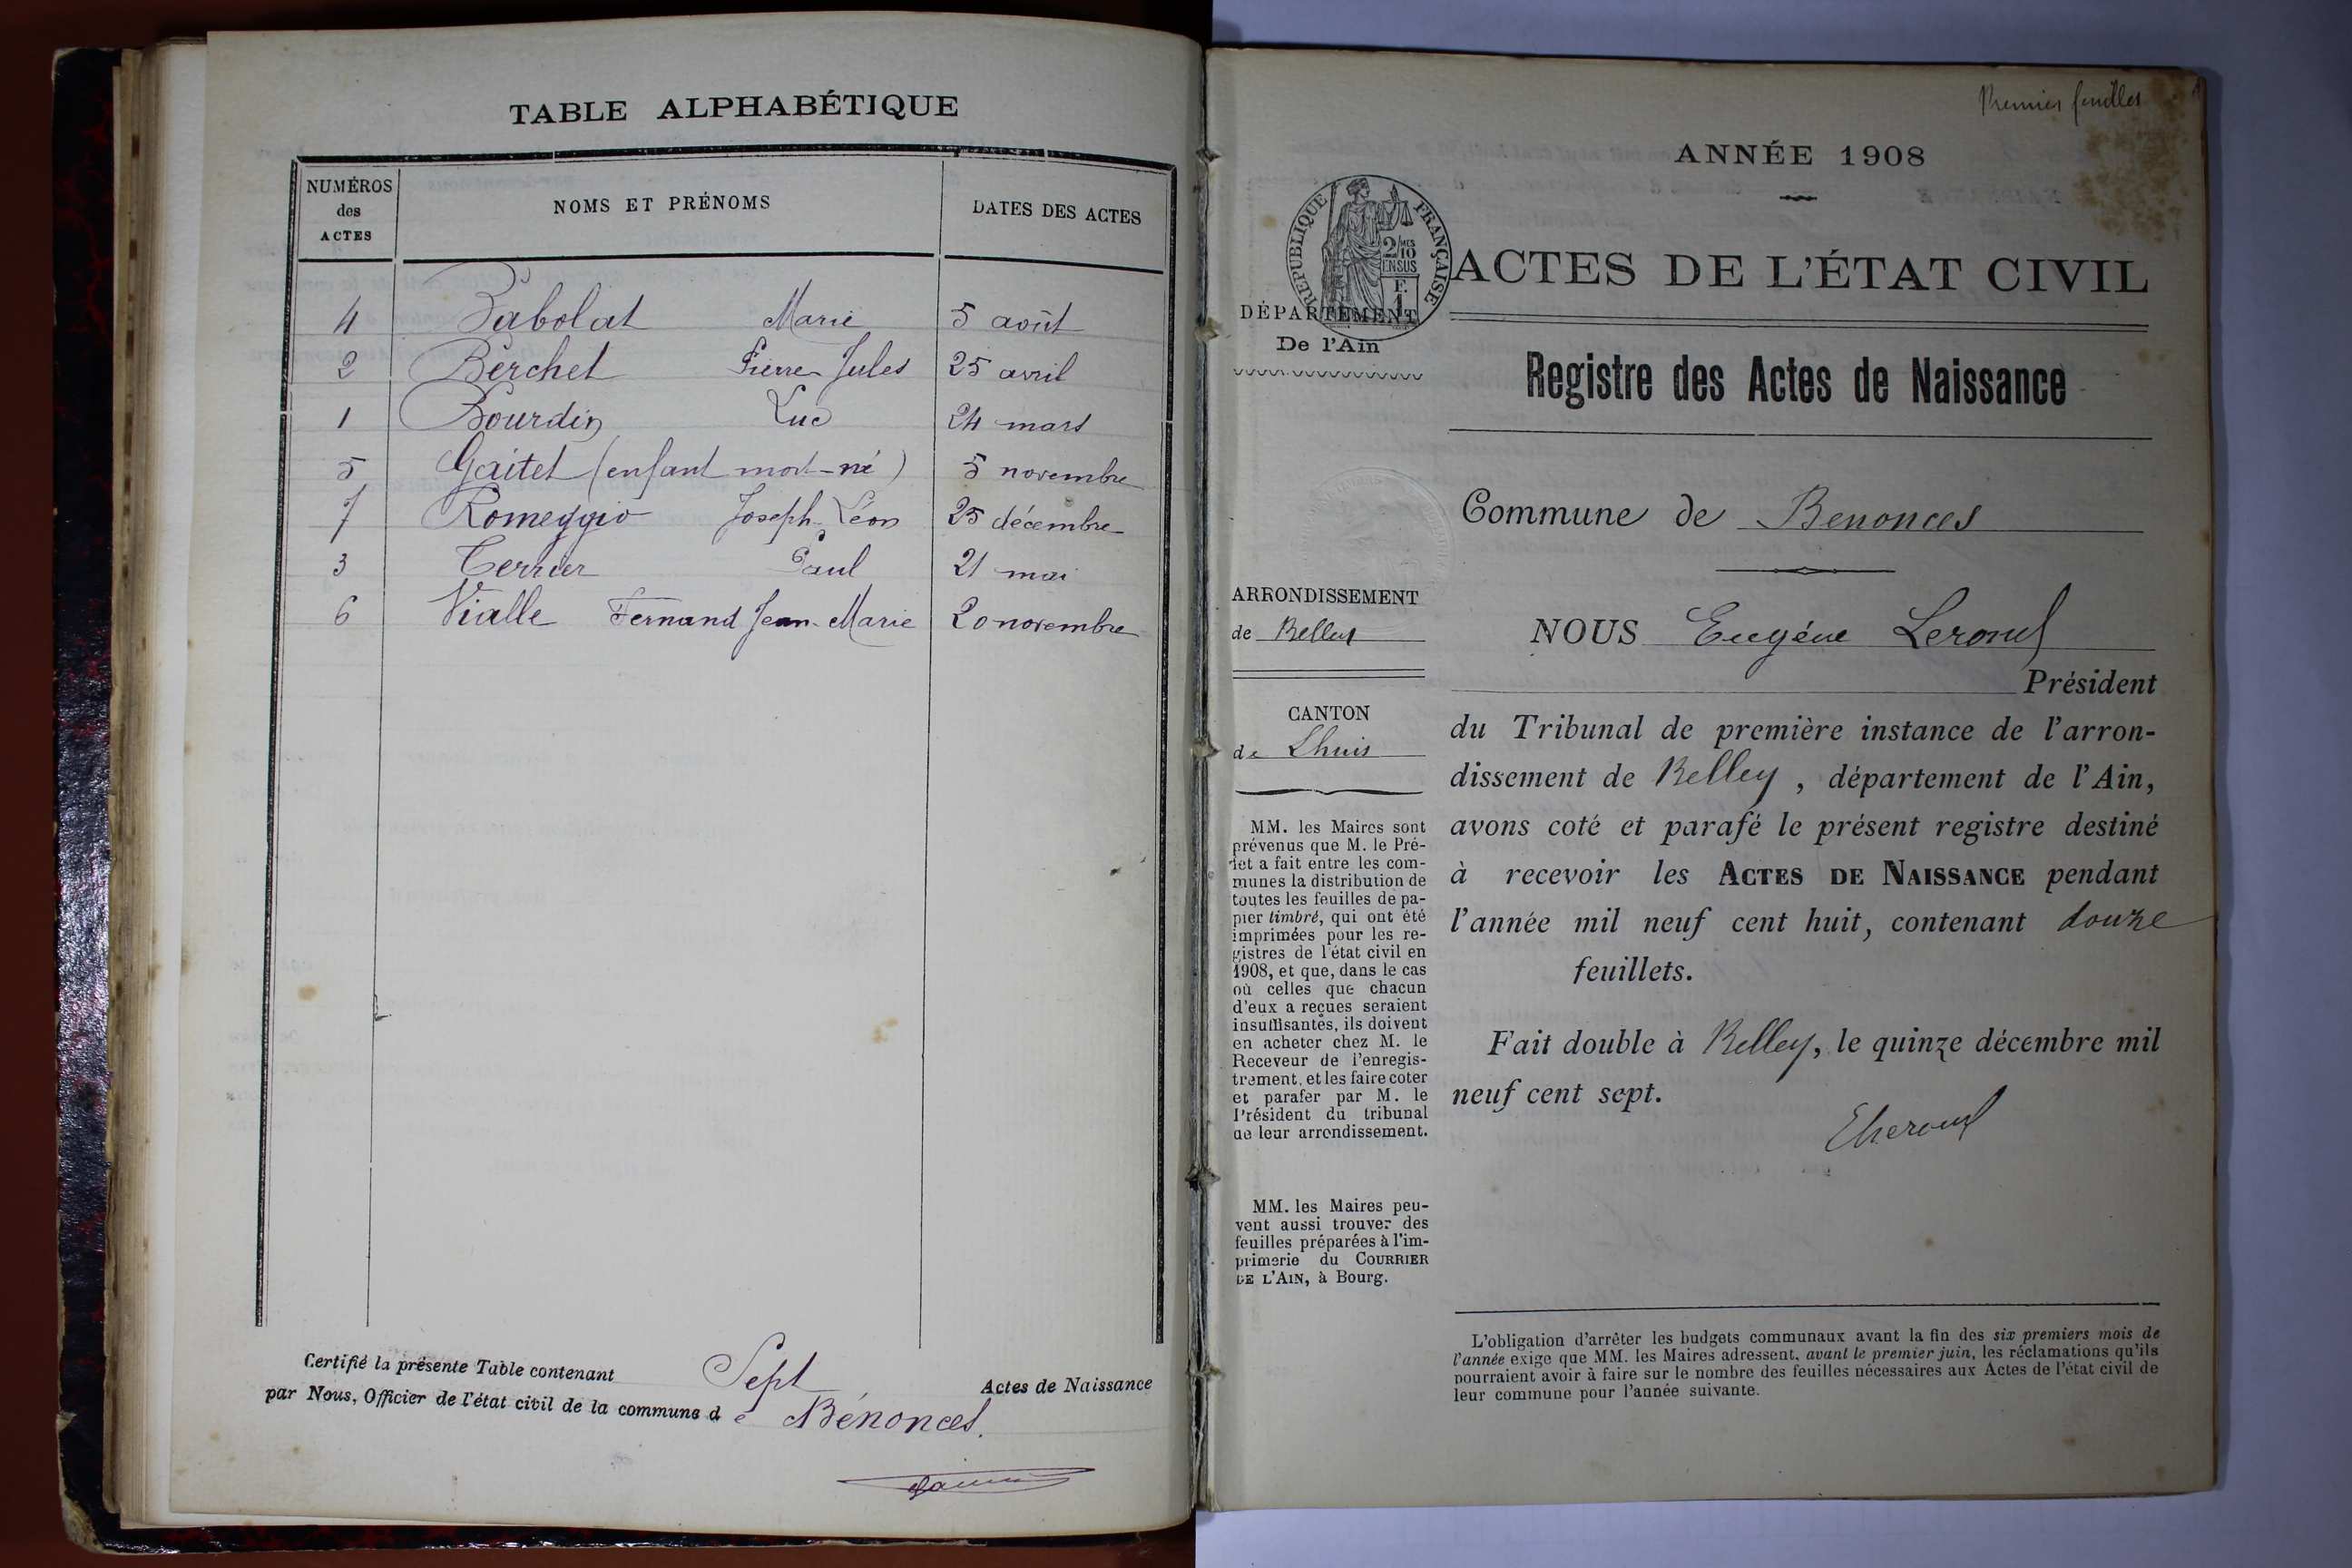 TABLE ALPHABÉTIQUE
NUMÉROS des ACTES NOMS ET PRÉNOMS DATES DES ACTES
4 Babolat Marie 5 août
2 Berchet Pierre Jules 25 avril
1 Bourdin Luc 24 mars
5 Gaitet (enfant mort-né) 5 novembre
7 Romeggio Joseph Léon 25 décembre
3 Terrier Paul 21 mai
6 Vialle Fernand Jean-Marie 20 novembre
Certifié la présente Table contenant Sept Actes de Naissance
par Nous, Officier de l'état civil de la commune de Bénonces.
Premier feuillet
ANNÉE 1908
RÉPUBLIQUE FRANÇAISE
2/10MES
EN SUS
F.
1
ACTES DE L'ÉTAT CIVIL
DÉPARTEMENT
De l'Ain
Registre des Actes de Naissance
Commune de Benonces
ARRONDISSEMENT
de Belley
CANTON
de Lhuis
MM. les Maires sont
prévenus que M. le Pré-
fet a fait entre les com-
munes la distribution de
toutes les feuilles de pa-
pier timbré, qui ont été
imprimées pour les re-
gistres de l'état civil en
1908, et que, dans le cas
où celles que chacun
d'eux a reçues seraient
insuffisantes, ils doivent
en acheter chez M. le
Receveur de l'enregis-
trement, et les faire coter
et parafer par M. le
Président du tribunal
de leur arrondissement.
MM. les Maires peu-
vent aussi trouver des
feuilles préparées à l'im-
primerie du COURRIER
DE L'AIN, à Bourg.
NOUS Eugène
Président
du Tribunal de première instance de l'arron-
dissement de Belley, département de l'Ain,
avons coté et parafé le présent registre destiné
à recevoir les ACTES DE NAISSANCE pendant
l'année mil neuf cent huit, contenant douze
feuillets.
Fait double à Belley, le quinze décembre mil
neuf cent sept.
L'obligation d'arrêter les budgets communaux avant la fin des six premiers mois de
l'année exige que MM. les Maires adressent, avant le premier juin, les réclamations qu'ils
pourraient avoir à faire sur le nombre des feuilles nécessaires aux Actes de l'état civil de
leur commune pour l'année suivante.